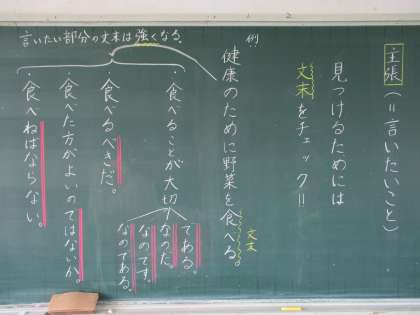 主張(=言いたいこと)
見つけるためには
文末をチェック‼
例
健康のために野菜を食べる。
文末
言いたい部分の文末は強くなる。
・食べることが大切
である。
なのだ。
なのです。
なのである。
・食べるべきだ。
・食べた方がよいのではないか。
・食べねばならない。